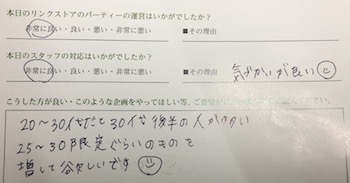 本日のリンクストアのパーティーの運営はいかがでしたか?
非常に良い・良い・悪い・非常に悪い ■その理由
本日のスタッフの対応はいかがでしたか?
非常に良い・良い・悪い・非常に悪い ■その理由 気づかいが良い
こうした方が良い・このような企画をやってほしい等、ご要望が
20~30代だと30代後半の人が多い
25~30才限定ぐらいのものを
増して欲しいです